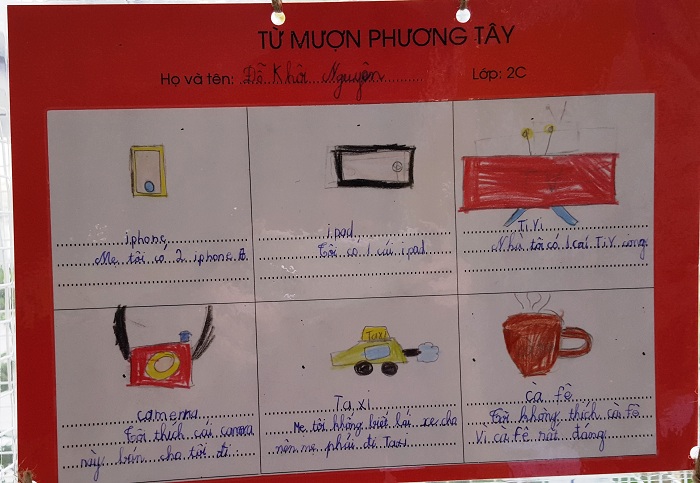 TỪ MƯỢN PHƯƠNG TÂY
Họ và tên: Đỗ Khôi Nguyên Lớp: 2C
iphone
Mẹ tôi có 2 iphone 8.
ipad
Tôi có 1 cái ipad
Ti Vi
Nhà tôi có 1 cái Ti V cong
camera
Tôi thích cái camera
này bán cha tôi đi.
Taxi
Ta xi
Mẹ tôi không biết lái xe cha
nên mẹ phải đi Taxi
cà fê
Tôi không thích cà fê
Vì cà fê rất đắng